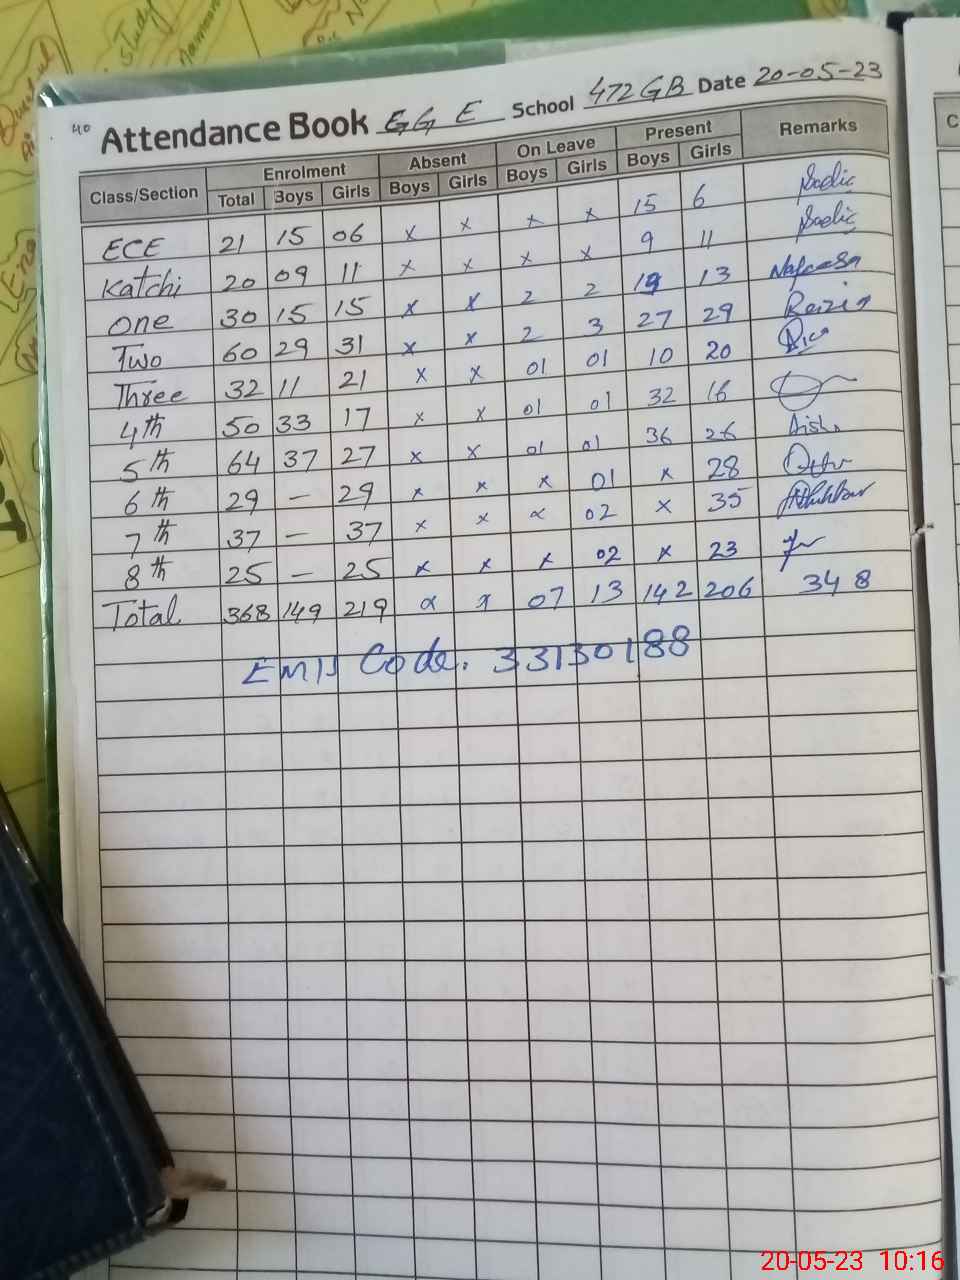 40 Attendance Book G G E School 472 GB Date 20-05-23
Class/Section Enrolment Absent On Leave Present Remarks
Total Boys Girls Boys Girls Boys Girls Boys Girls
ECE 21 15 06 x x x x 15 6 Sadic
Katchi 20 09 11 x x x x 9 11 Sadic
One 30 15 15 x x 2 2 13 Nafeesa
Two 60 29 31 x x 2 3 27 29
Three 32 11 21 x x 01 01 10 20
4th 50 33 17 x x 01 01 32 16
5th 64 37 27 x x 01 01 36 26
6th 29 – 29 x x x 01 x 28
7th 37 – 37 x x x 02 x 35
8th 25 – 25 x x x 02 x 23
Total 368 149 219 x x 07 13 142 206 348
EMIS Code. 33130188
C
20-05-23 10:16